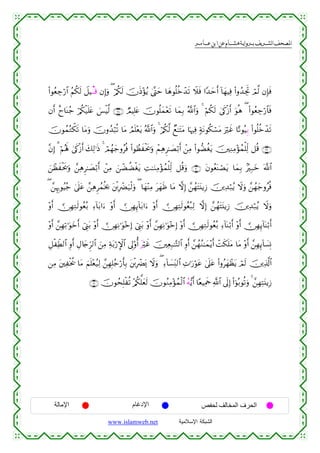 المصحف الشريف برواية هشام عن ابن عامر
فَإِن لَّمْ تَجِدُوا۟ فِيهَآ أَحَدًا فَلَا تَدْخُلُوهَا حَتَّىٰ يُؤْذَنَ لَكُمْ ۖ وَإِن قِيلَ لَكُمُ ٱرْجِعُوا۟
فَٱرْجِعُوا۟ ۖ هُوَ أَزْكَىٰ لَكُمْ ۚ وَٱللَّهُ بِمَا تَعْمَلُونَ عَلِيمٌ لَّيْسَ عَلَيْكُمْ جُنَاحٌ أَن
تَدْخُلُوا۟ بُيُوتًا غَيْرَ مَسْكُونَةٍ فِيهَا مَتَٰعٌ لَّكُمْ ۚ وَٱللَّهُ يَعْلَمُ مَا تُبْدُونَ وَمَا تَكْتُمُونَ
قُل لِّلْمُؤْمِنِينَ يَغُضُّوا۟ مِنْ أَبْصَٰرِهِمْ وَيَحْفَظُوا۟ فُرُوجَهُمْ ۚ ذَٰلِكَ أَزْكَىٰ لَهُمْ ۗ إِنَّ
ٱللَّهَ خَبِيرٌۢ بِمَا يَصْنَعُونَ وَقُل لِّلْمُؤْمِنَٰتِ يَغْضُضْنَ مِنْ أَبْصَٰرِهِنَّ وَيَحْفَظْنَ
فُرُوجَهُنَّ وَلَا يُبْدِينَ زِينَتَهُنَّ إِلَّا مَا ظَهَرَ مِنْهَا ۖ وَلْيَضْرِبْنَ بِخُمُرِهِنَّ عَلَىٰ جِيُوبِهِنَّ ۖ
وَلَا يُبْدِينَ زِينَتَهُنَّ إِلَّا لِبُعُولَتِهِنَّ أَوْ ءَابَآئِهِنَّ أَوْ ءَابَآءِ بُعُولَتِهِنَّ أَوْ
أَبْنَآئِهِنَّ أَوْ أَبْنَآءِ بُعُولَتِهِنَّ أَوْ إِخْوَٰنِهِنَّ أَوْ بَنِىٓ إِخْوَٰنِهِنَّ أَوْ بَنِىٓ أَخَوَٰتِهِنَّ أَوْ
نِسَآئِهِنَّ أَوْ مَا مَلَكَتْ أَيْمَٰنُهُنَّ أَوِ ٱلتَّٰبِعِينَ غَيْرَ أُو۟لِى ٱلْإِرْبَةِ مِنَ ٱلرِّجَالِ أَوِ ٱلطِّفْلِ
ٱلَّذِينَ لَمْ يَظْهَرُوا۟ عَلَىٰ عَوْرَٰتِ ٱلنِّسَآءِ ۖ وَلَا يَضْرِبْنَ بِأَرْجُلِهِنَّ لِيُعْلَمَ مَا يُخْفِينَ مِن
زِينَتِهِنَّ ۚ وَتُوبُوٓا۟ إِلَى ٱللَّهِ جَمِيعًا أَيُّهَ ٱلْمُؤْمِنُونَ لَعَلَّكُمْ تُفْلِحُونَ
الحرف المخالف لحفص الإدغام الإمالة
الشبكة الإسلامية www.islamweb.net